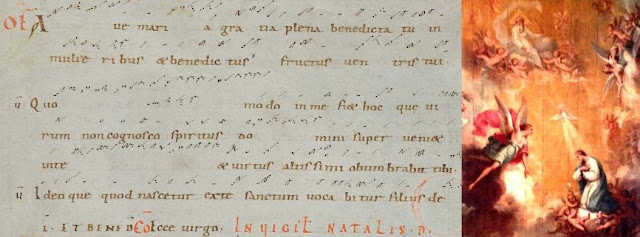 OF A ue mari a gra tia plena benedicta tu in
mulie ribus & benedic tus fructus uen tris tui
V Quo modo in me fi& hoc que ui
rum non cognosco spiritus do mini super ueni&
in te & uirtus altissimi obumbrabit tibi.
V Ideo que quod nascetur ex te sanctum uoca bi tur filius de
i. ET BENED CO Ecce uirgo. IN VIGIL NATALIS. D.